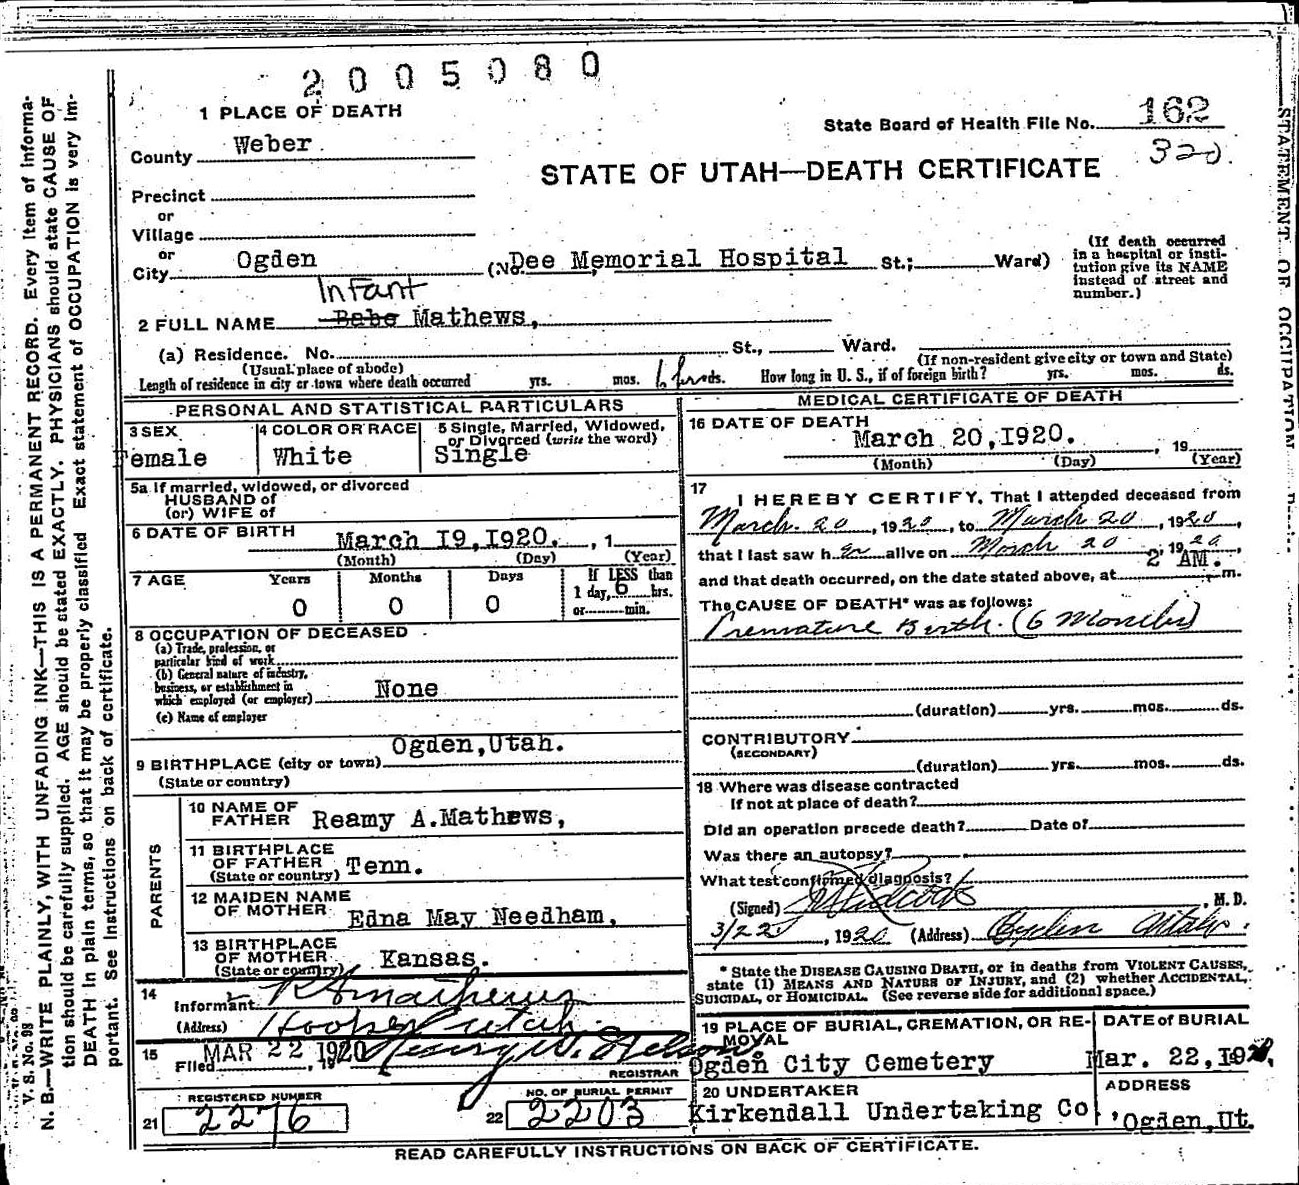 2005080
1 PLACE OF DEATH
State Board of Health File No. 162
320
County Weber
STATE OF UTAH—DEATH CERTIFICATE
Precinct
or
Village
or
City Ogden (No. Dee Memorial Hospital St.; Ward)
(If death occurred
in a hospital or insti-
tution give its NAME
instead of street and
number.)
Infant
2 FULL NAME Babe Mathews,
(a) Residence. No. St., Ward.
(Usual place of abode) (If non-resident give city or town and State)
Length of residence in city or town where death occurred yrs. mos. 6 hrs ds. How long in U. S., if of foreign birth? yrs. mos. ds.
PERSONAL AND STATISTICAL PARTICULARS
3 SEX
Female
4 COLOR OR RACE
White
5 Single, Married, Widowed,
or Divorced (write the word)
Single
5a If married, widowed, or divorced
HUSBAND of
(or) WIFE of
6 DATE OF BIRTH March 19, 1920. , 1
(Month) (Day) (Year)
7 AGE Years Months Days If LESS than
1 day, 6 hrs.
0 0 0 or min.
8 OCCUPATION OF DECEASED
(a) Trade, profession, or
particular kind of work
(b) General nature of industry,
business, or establishment in
which employed (or employer) None
(c) Name of employer
9 BIRTHPLACE (city or town) Ogden, Utah.
(State or country)
PARENTS
10 NAME OF
FATHER Reamy A. Mathews,
11 BIRTHPLACE
OF FATHER Tenn.
(State or country)
12 MAIDEN NAME
OF MOTHER Edna May Needham,
13 BIRTHPLACE
OF MOTHER Kansas.
(State or country)
14
Informant R A Mathews
(Address) Hooper Utah
15
Filed MAR 22 1920, 19 Henry W. Nelson
REGISTRAR
REGISTERED NUMBER
21 2276
NO. OF BURIAL PERMIT
22 2203
MEDICAL CERTIFICATE OF DEATH
16 DATE OF DEATH
March 20, 1920. , 19
(Month) (Day) (Year)
17
I HEREBY CERTIFY, That I attended deceased from
March 20, 1920, to March 20, 1920,
that I last saw her alive on March 20, 1920,
and that death occurred, on the date stated above, at 2 AM. m.
The CAUSE OF DEATH* was as follows:
Premature Birth. (6 Months)
(duration) yrs. mos. ds.
CONTRIBUTORY
(SECONDARY)
(duration) yrs. mos. ds.
18 Where was disease contracted
If not at place of death?
Did an operation precede death? Date of
Was there an autopsy?
What test confirmed diagnosis?
(Signed) , M. D.
3/22, 1920 (Address) Ogden Utah.
* State the DISEASE CAUSING DEATH, or in deaths from VIOLENT CAUSES,
state (1) MEANS AND NATURE OF INJURY, and (2) whether ACCIDENTAL,
SUICIDAL, or HOMICIDAL. (See reverse side for additional space.)
19 PLACE OF BURIAL, CREMATION, OR RE-
MOVAL
Ogden City Cemetery
DATE of BURIAL
Mar. 22, 19
20 UNDERTAKER
Kirkendall Undertaking Co.
ADDRESS
Ogden, Ut.
READ CAREFULLY INSTRUCTIONS ON BACK OF CERTIFICATE.
V. S. No. 98
N. B.—WRITE PLAINLY, WITH UNFADING INK—THIS IS A PERMANENT RECORD. Every item of informa-
tion should be carefully supplied. AGE should be stated EXACTLY. PHYSICIANS should state CAUSE OF
DEATH in plain terms, so that it may be properly classified. Exact statement of OCCUPATION is very im-
portant. See instructions on back of certificate.
STATEMENT OF OCCUPATION